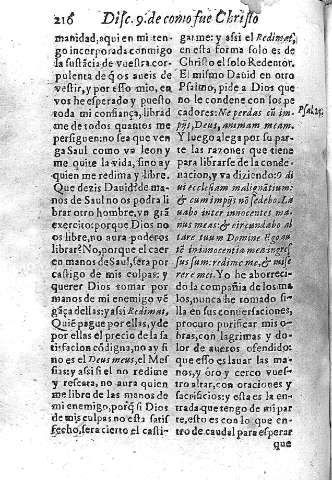 216 Disc. 9. de como fue Christo
manidad, aqui en mi ten-
go incorporada conmigo
la sustãcia de vuestra cor-
pulenta de q̃ os aueis de
vestir, y por esso mio, en
vos he esperado y puesto
toda mi confiança, librad
me de todos quantos me
persiguen: no sea que ven
ga Saul como vn leon y
me quite la vida, sino ay
quien me redima y libre.
Que dezis Dauid? de ma-
nos de Saul no os podra li
brar otro hombre, vn grã
exercito: porque Dios no
os libre, no aura poderos
librar? No, porque el caer
en manos de Saul, sera por
castigo de mis culpas: y
querer Dios tomar por
manos de mi enemigo vẽ
gãça dellas: y assi Redimat,
Quiẽ pague por ellas, y de
por ellas el precio de la sa
tisfacion cõdigna, no ay si
no es el Deus meus, el Mes
sias: y assi si el no redime
y rescata, no aura quien
me libre de las manos de
mi enemigo, porq̃ si Dios
de mis culpas no esta satis
fecho, sera cierto el casti-
garme: y assi es Redimat,
en esta forma solo es de
Christo el solo Redentor.
El mismo Dauid en otro
Psalmo, pide a Dios que
no le condene con los pe
cadores: Ne perdas cũ im-
pijs, Deus, animam meam.
Psal. 25.
Y luego alega por su par-
te las razones que tiene
para librarse de la conde-
nacion, y va diziendo: O di
ui ecclesiam malignãtium:
& cum impijs nõ sedebo. La
uabo inter innocentes ma-
nus meas: & circundabo al
tare tuum Domine: Ego au
tẽ in innocentia mea ingres
sus sum: redime me, & mise
rere mei. Yo he aborreci-
do la compañia de los ma
los, nunca he tomado si-
lla en sus conuersaciones,
procuro purificar mis o-
bras, con lagrimas y do-
lor de aueros ofendido:
que esso es lauar las ma-
nos, y ò ro y cerco vues-
tro altar, con oraciones y
sacrificios: y esta es la en-
trada que tengo de mi par
te, esto es con lo que en-
tro de caudal para esperar
que